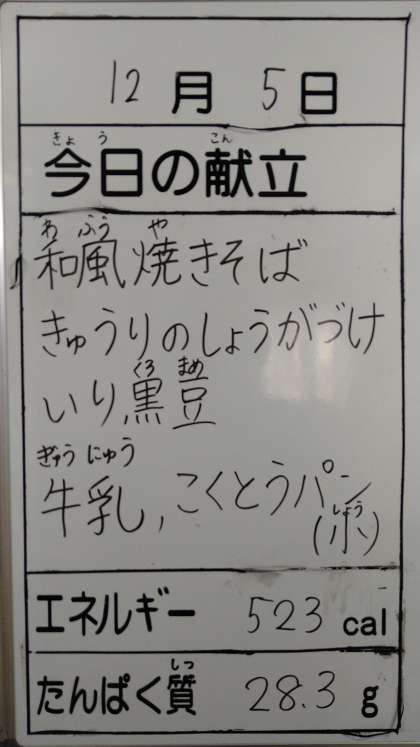 12月 5日
きょう こん
今日の献立
わ ふう や
和風焼きそば
きゅうりのしょうがづけ
くろ まめ
いり黒豆
ぎゅう にゅう
牛乳,こくとうパン
しょう
(小)
エネルギー 523 cal
しつ
たんぱく質 28.3 g